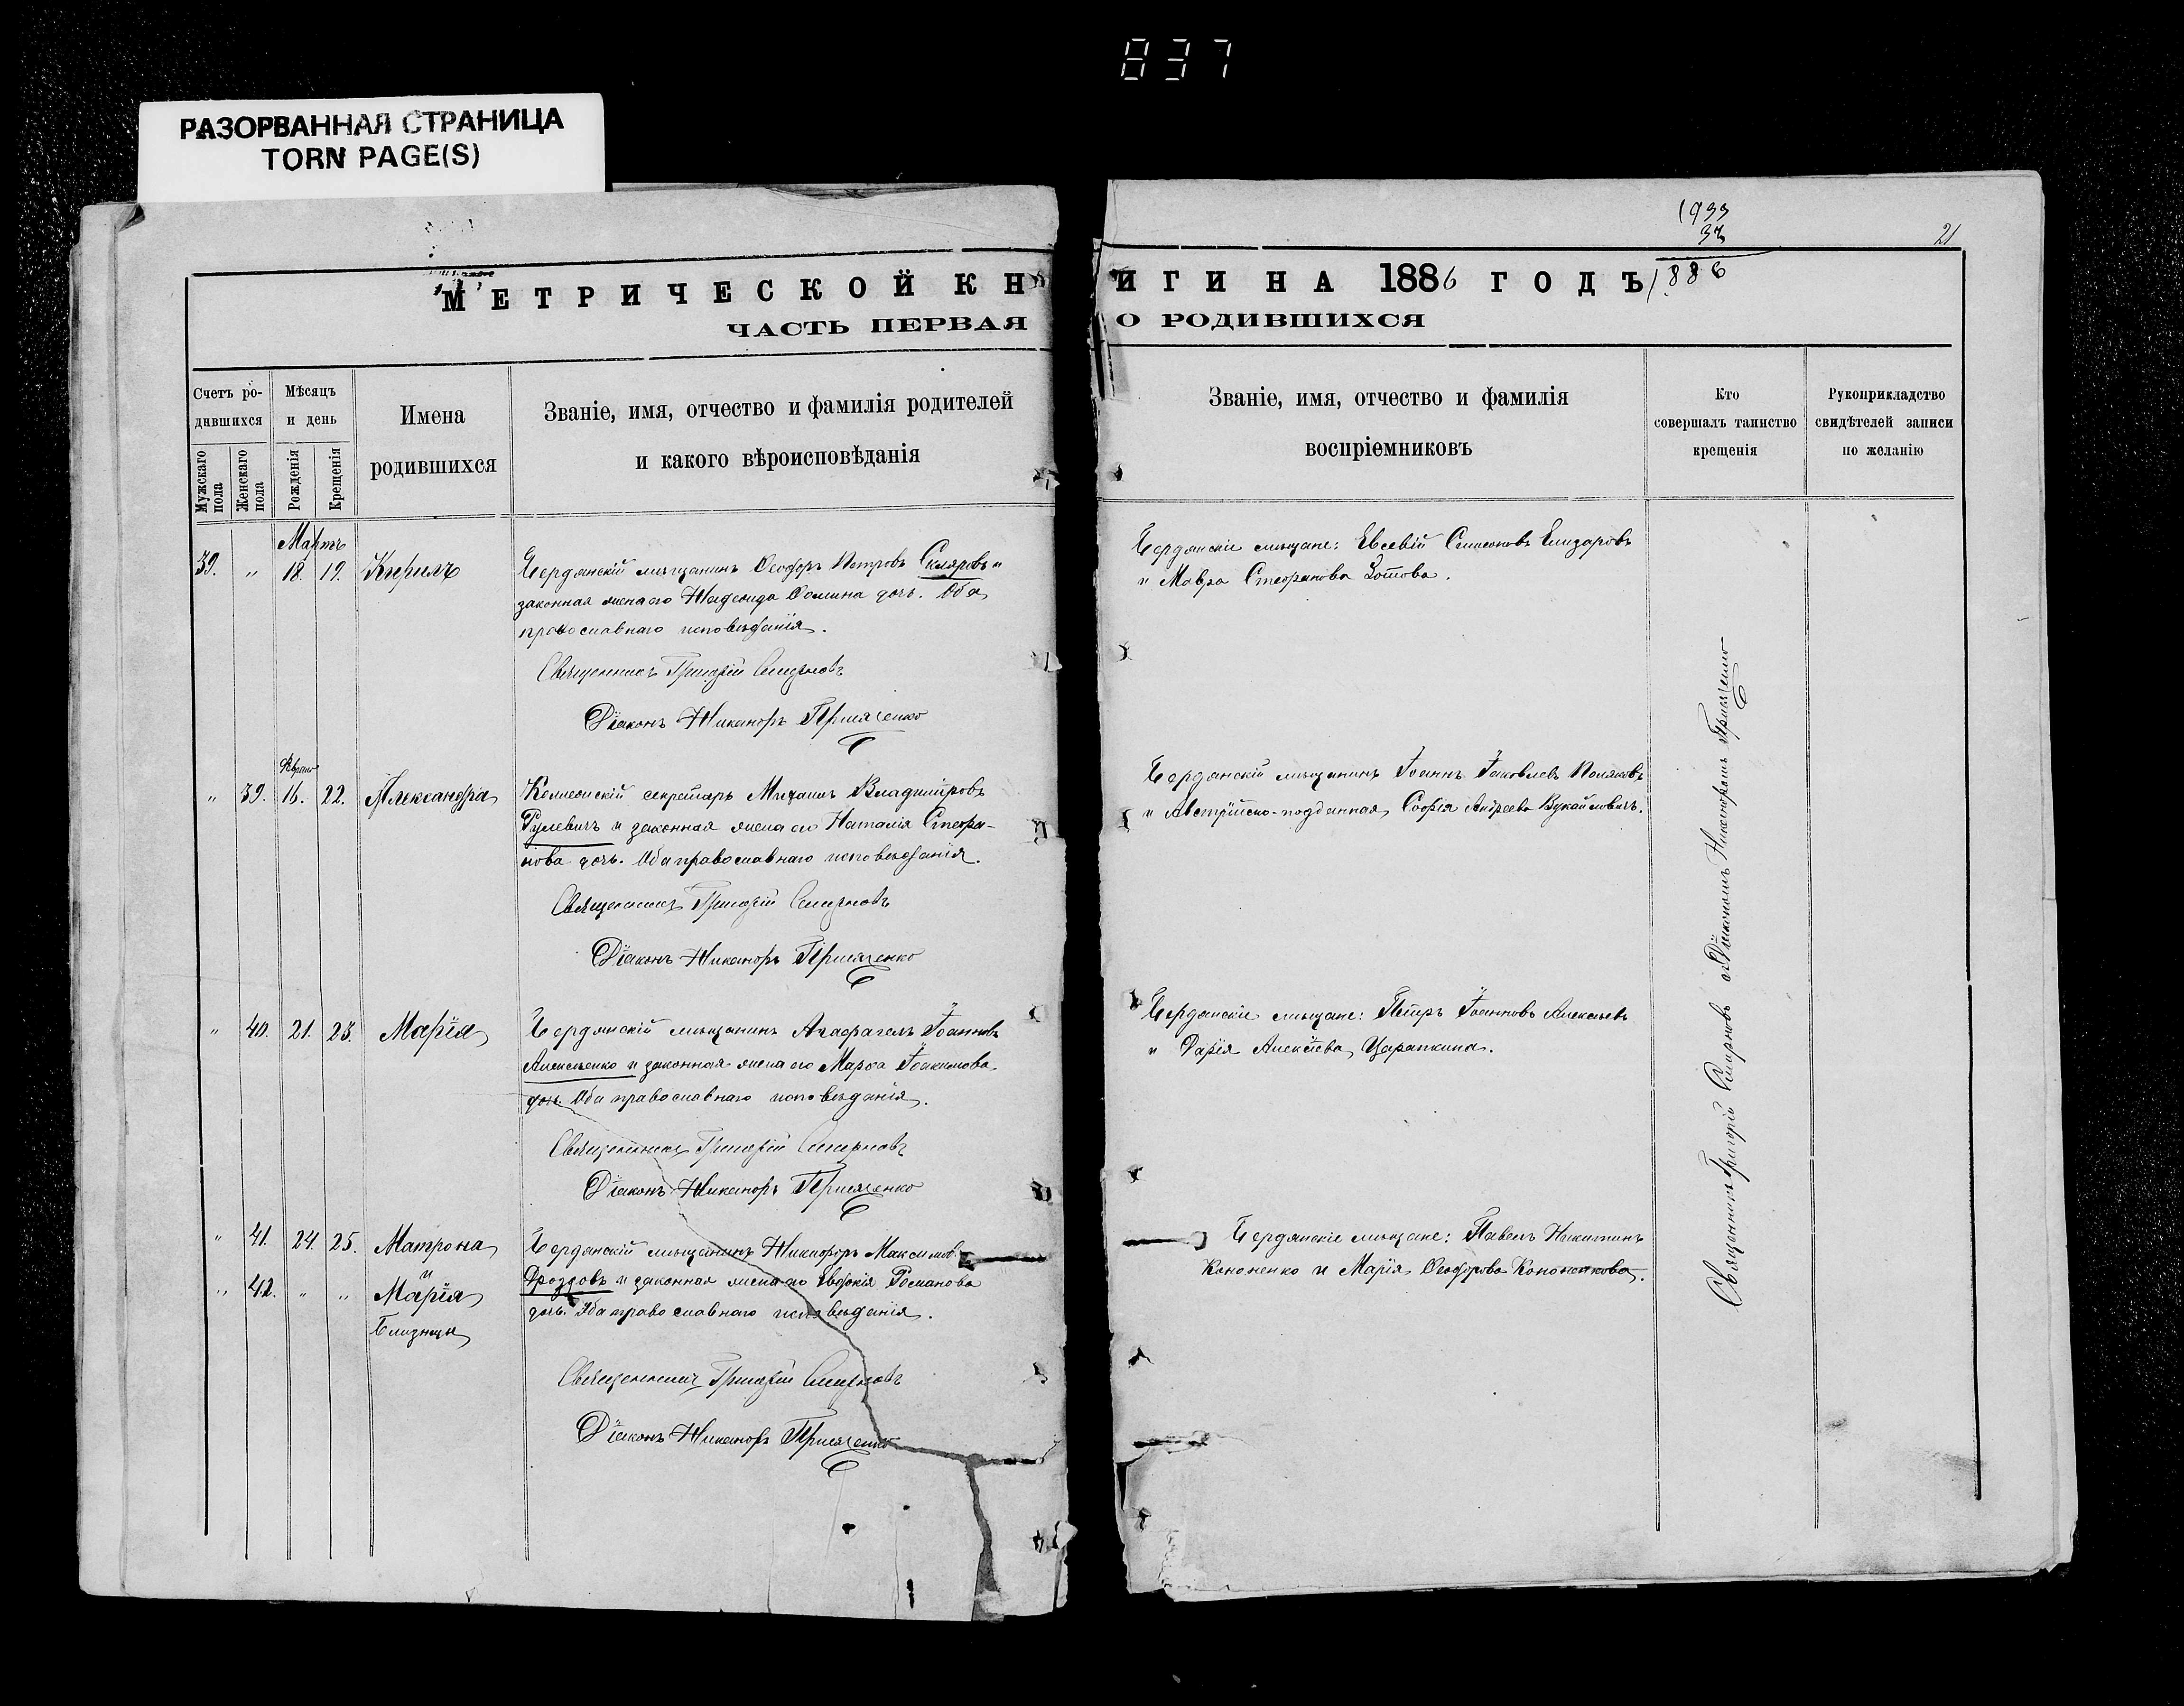 837
РАЗОРВАННАЯ СТРАНИЦА
TORN PAGE(S)
1933
37
1886
21
МЕТРИЧЕСКОЙ КНИГИ НА 1886 ГОДЪ
ЧАСТЬ ПЕРВАЯ О РОДИВШИХСЯ
Счетъ ро-
дившихся
Мужскаго
пола
Женскаго
пола
Мѣсяцъ
и день
Рожденія
Крещенія
Имена
родившихся
Званіе, имя, отчество и фамилія родителей
и какого вѣроисповѣданія
Званіе, имя, отчество и фамилія
воспріемниковъ
Кто
совершалъ таинство
крещенія
Рукоприкладство
свидѣтелей записи
по желанію
Мартъ
39. " 18. 19. Кирилъ
Бердянскій мѣщанинъ Ѳеодоръ Петровъ Скляровъ и
законная жена его Надежда Ѳомина дочь. Оба
православнаго исповѣданія.
Священникъ Григорій Смирновъ
Діаконъ Никаноръ Присяженко
Бердянскіе мѣщане: Евсевій Симеоновъ Елизаровъ
и Мавра Стефанова Зотова.
" 39. 16. 22. Александра
Коллежскій секретарь Михаилъ Владиміровъ
Гулевичъ и законная жена его Наталія Стефа-
нова дочь. Оба православнаго исповѣданія.
Священникъ Григорій Смирновъ
Діаконъ Никаноръ Присяженко
Бердянскій мѣщанинъ Іоаннъ Іаковлевъ Поляковъ
и Австрійско-подданная Софія Андреева Вукайловичъ.
" 40. 21. 23. Марія
Бердянскій мѣщанинъ Іоанновъ
Алексѣенко и законная жена его Марѳа Іоакимова
дочь. Оба православнаго исповѣданія.
Священникъ Григорій Смирновъ
Діаконъ Никаноръ Присяженко
Бердянскіе мѣщане: Петръ Іоанновъ Алексѣевъ
и Дарія Алексѣева Царапкина.
" 41. 24. 25. Матрона
и
" 42. " " Марія
Близнцы
Бердянскій мѣщанинъ Никифоръ Максимовъ
Дроздовъ и законная жена его Евдокія Романова
дочь. Оба православнаго исповѣданія.
Священникъ Григорій Смирновъ
Діаконъ Никаноръ Присяженко
Бердянскіе мѣщане: Павелъ Никитинъ
Кононенко и Марія Ѳеодорова Кононенкова.
Священникъ Григорій Смирновъ съ Діакономъ Никаноромъ Присяженко